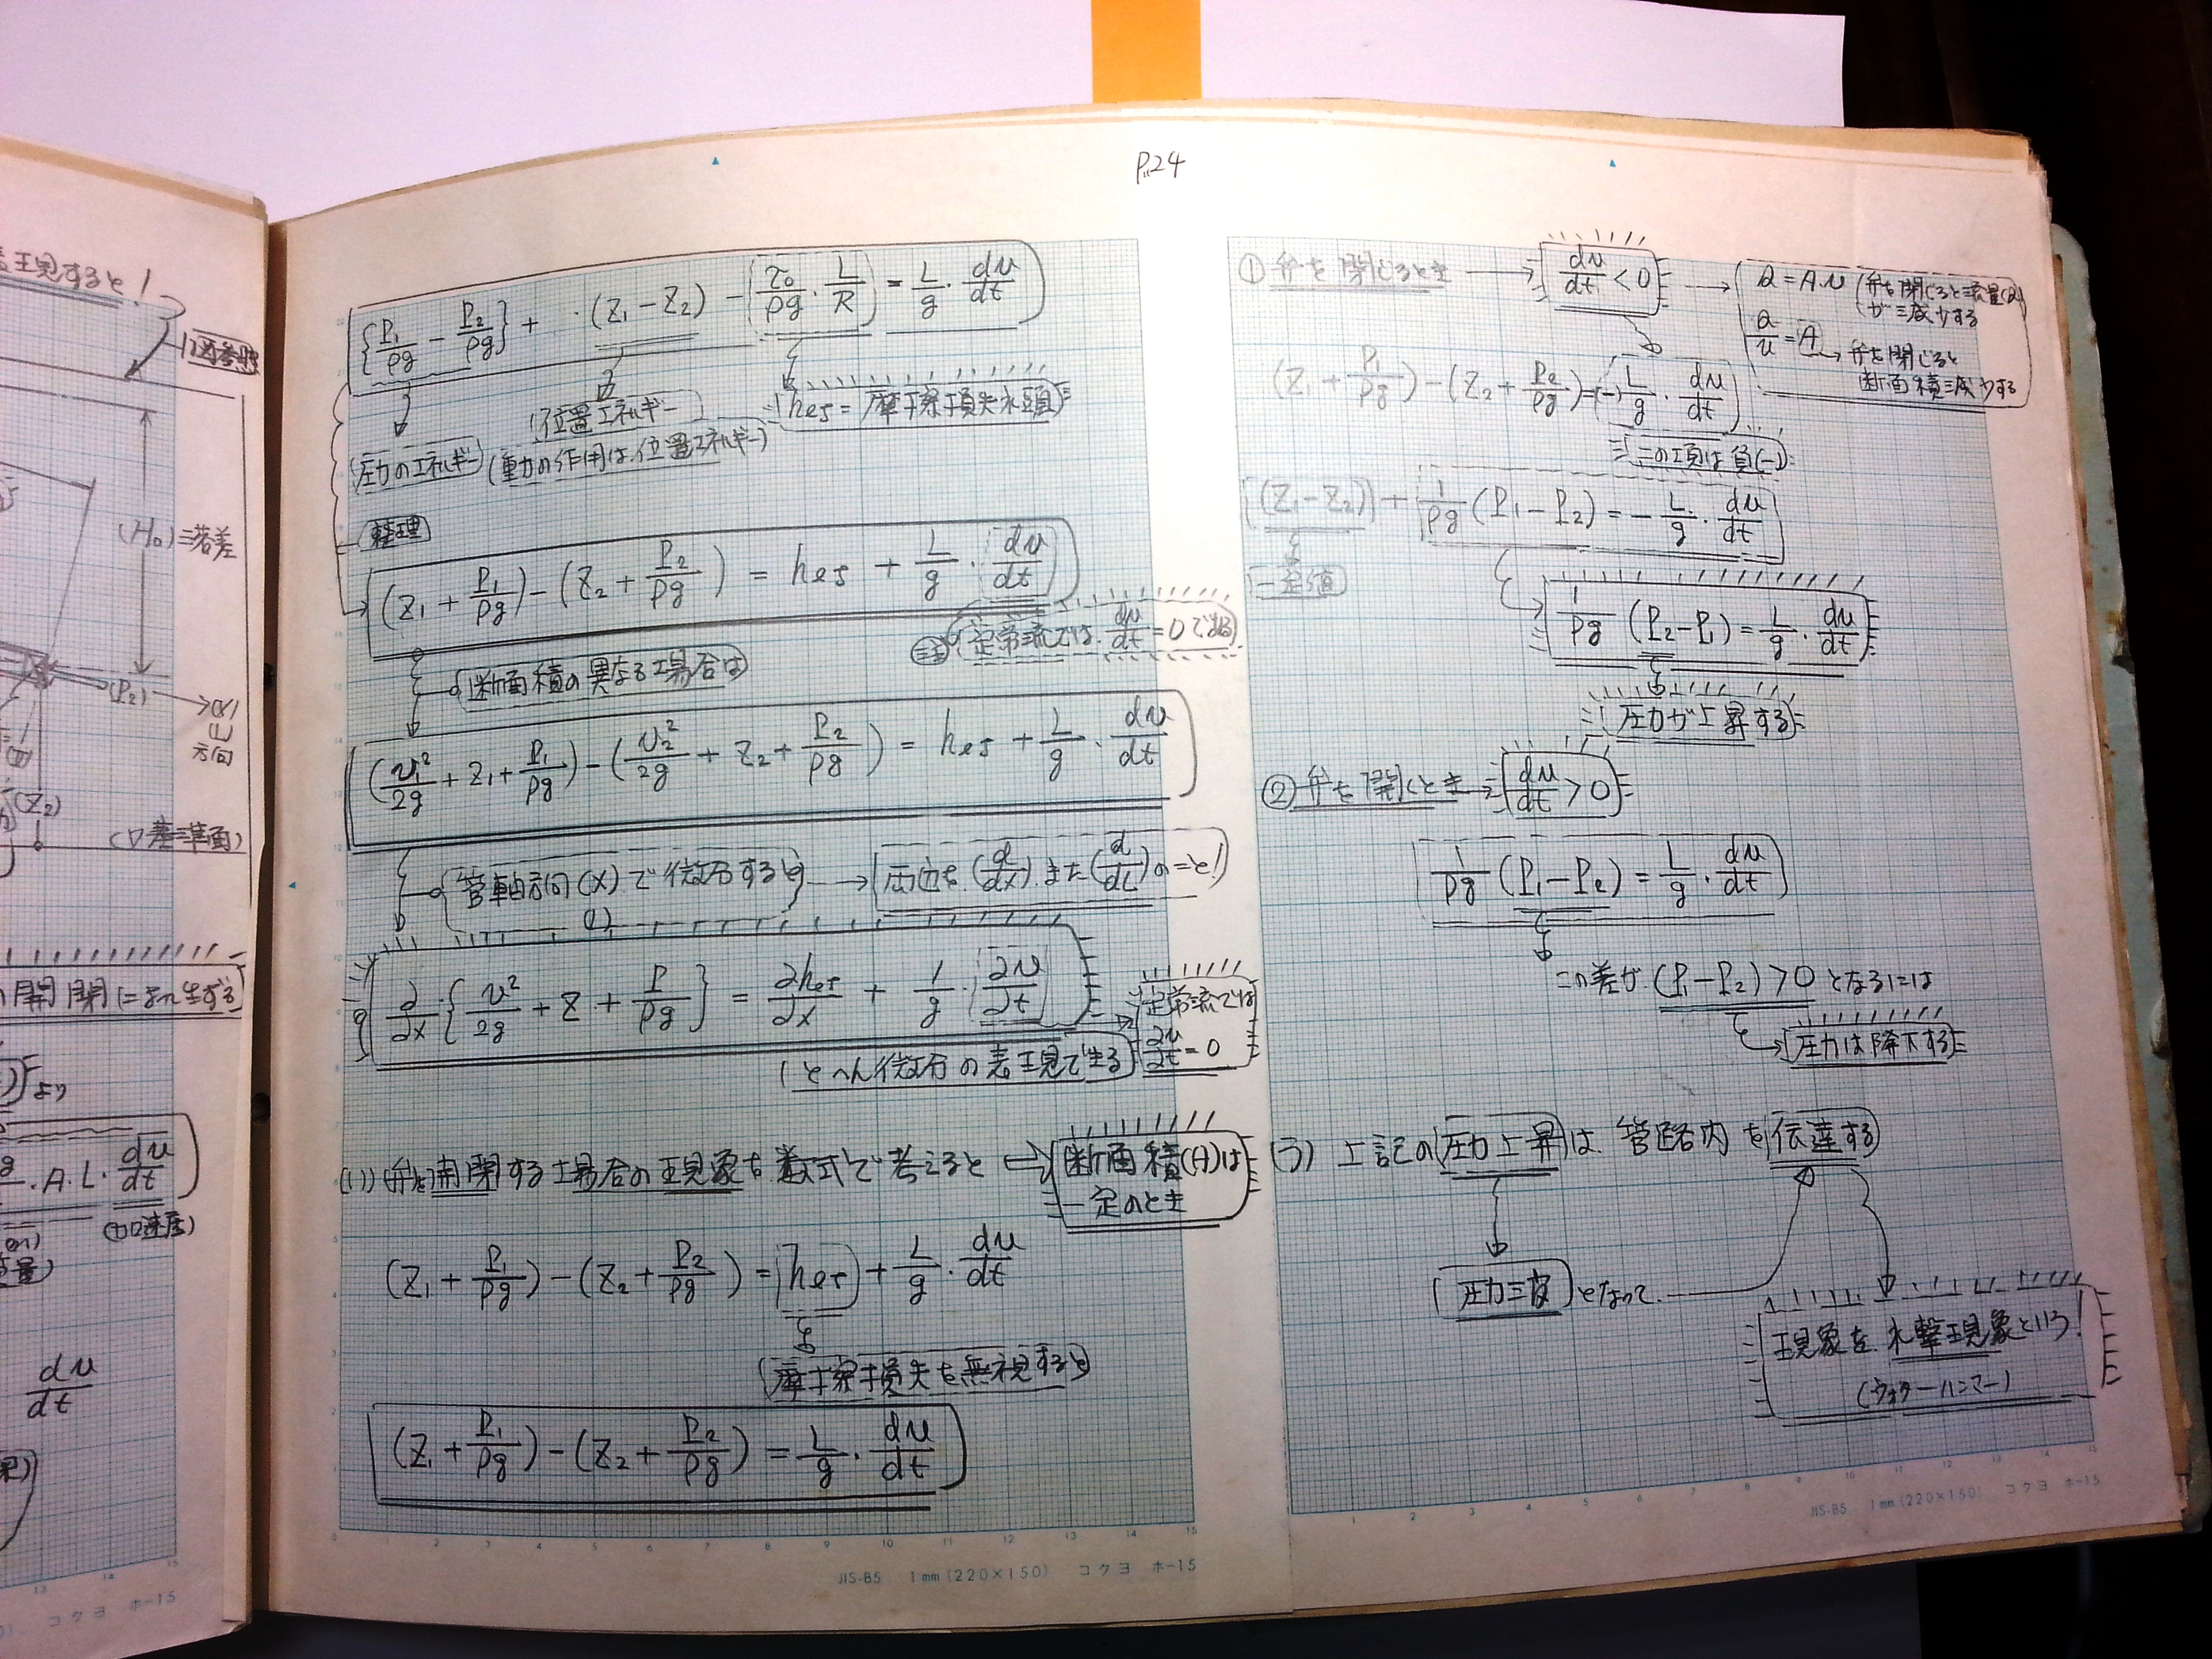 P.24
表現すると!
図参照
(H₀)=落差
(P₂)
方向
(Z₂)
(▽基準面)
開閉により生ずる
より
·A·L·du/dt
(加速度)
du/dt
{P₁/ρg − P₂/ρg} + ·(Z₁−Z₂) − (τ₀/ρg · L/R) = L/g · du/dt
位置エネルギー
hes=摩擦損失水頭
圧力のエネルギー (重力の作用は位置エネルギー)
整理
(Z₁ + P₁/ρg) − (Z₂ + P₂/ρg) = hes + L/g · du/dt
定常流では du/dt = 0である
断面積の異なる場合は
(v₁²/2g + Z₁ + P₁/ρg) − (v₂²/2g + Z₂ + P₂/ρg) = hes + L/g · du/dt
管軸方向(X)で微分すると → 両辺を(d/dx)また(d/dL)のこと!
(L)
∂/∂x {v²/2g + Z + P/ρg} = ∂hes/∂x + 1/g · ∂u/∂t
定常流では
∂u/∂t = 0
(とへん微分の表現で出る)
(1) 弁を開閉する場合の現象を数式で考えると → 断面積(A)は
一定のとき
(Z₁ + P₁/ρg) − (Z₂ + P₂/ρg) = hes + L/g · du/dt
摩擦損失を無視すると
(Z₁ + P₁/ρg) − (Z₂ + P₂/ρg) = L/g · du/dt
JIS-B5 1mm(220×150) コクヨ ホ-15
① 弁を閉じるとき → du/dt < 0 → Q = A·u (弁を閉じると流量(Q)
が減少する
Q/u = A → 弁を閉じると
断面積減少する
(Z₁ + P₁/ρg) − (Z₂ + P₂/ρg) = (−) L/g · du/dt
この項は負(−)
(Z₁−Z₂) + 1/ρg (P₁−P₂) = − L/g · du/dt
一定値
1/ρg (P₂−P₁) = L/g · du/dt
圧力が上昇する
② 弁を開くとき → du/dt > 0
1/ρg (P₁−P₂) = L/g · du/dt
この差が (P₁−P₂) > 0 となるには
圧力は降下する
(う) 上記の圧力上昇は管路内を伝達する
圧力波となって
現象を水撃現象という!
(ウォターハンマー)
JIS-B5 1mm(220×150) コクヨ ホ-15
コクヨ ホ-15